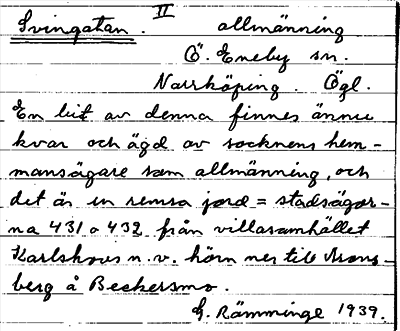 Svingatan. II allmänning
Ö. Eneby sn.
Norrköping. Ögl.
En bit av denna finnes ännu
kvar och ägd av socknens hem-
mansägare som allmänning, och
det är en remsa jord = stadsägor-
na 431 o 432 från villasamhället
Karlshovs n.v. hörn ner till
berg å Beckersmo.
G. Rämminge 1939.